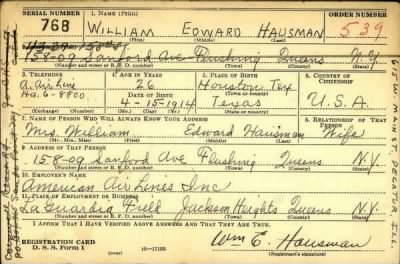 SERIAL NUMBER 1. NAME (Print) ORDER NUMBER
768 WILLIAM EDWARD HAUSMAN 539
(First) (Middle) (Last)
158-09 Sanford Ave Flushing Queens N.Y.
(Number and street or R. F. D. number) (Town) (County) (State)
3. TELEPHONE 4. AGE IN YEARS 5. PLACE OF BIRTH 6. COUNTRY OF CITIZENSHIP
A. Air Line 26 Houston, Tex
Ha. 6-8800 DATE OF BIRTH
4-15-1914 Texas U.S.A.
(Exchange) (Number) (Mo.) (Day) (Yr.) (State or country)
7. NAME OF PERSON WHO WILL ALWAYS KNOW YOUR ADDRESS 8. RELATIONSHIP OF THAT PERSON
Mrs. William Edward Hausman Wife
(Mr., Mrs., Miss) (First) (Middle) (Last)
9. ADDRESS OF THAT PERSON
158-09 Sanford Ave Flushing Queens N.Y.
(Number and street or R. F. D. number) (Town) (County) (State)
10. EMPLOYER'S NAME
American Air Lines Inc
11. PLACE OF EMPLOYMENT OR BUSINESS
La Guardia Field Jackson Heights Queens N.Y.
(Number and street or R. F. D. number) (Town) (County) (State)
I AFFIRM THAT I HAVE VERIFIED ABOVE ANSWERS AND THAT THEY ARE TRUE.
REGISTRATION CARD
D. S. S. Form 1 Wm E. Hausman
(Registrant's signature)
615 W. MAIN ST. DECATUR ILL.